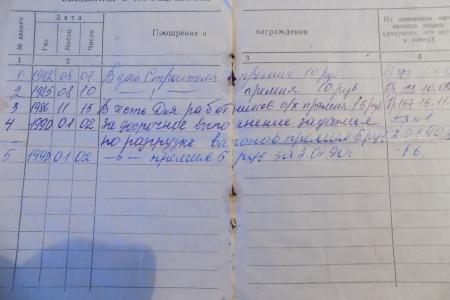 СВЕДЕНИЯ О ПООЩРЕНИЯХ
№ записи Дата Поощрения и награждения На основании чего внесена запись (документ, его дата и номер)
Год Месяц Число
1 2 3 4
1 1982 08 07 В день Строителя премия 10 руб.
2 1985 08 10 —„— премия 10 руб
3 1986 11 15 В честь Дня работников с/х премия 15 руб
4 1990 01 02 За досрочное выполнение задания
по разгрузке вагонов премия 5 руб 2 01 90
5 1990 01 02 —„— премия 5 руб